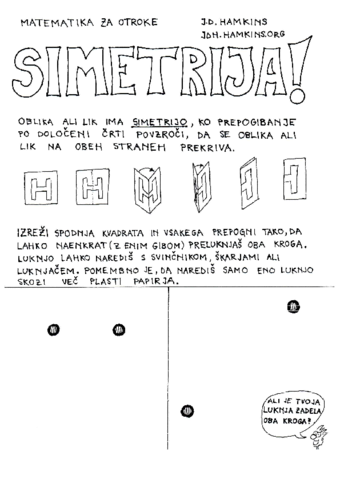 MATEMATIKA ZA OTROKE
J.D. HAMKINS
JDH.HAMKINS.ORG
SIMETRIJA!
OBLIKA ALI LIK IMA SIMETRIJO, KO PREPOGIBANJE
PO DOLOČENI ČRTI POVZROČI, DA SE OBLIKA ALI
LIK NA OBEH STRANEH PREKRIVA.
IZREŽI SPODNJA KVADRATA IN VSAKEGA PREPOGNI TAKO, DA
LAHKO NAENKRAT (Z ENIM GIBOM) PRELUKNJAŠ OBA KROGA.
LUKNJO LAHKO NAREDIŠ S SVINČNIKOM, ŠKARJAMI ALI
LUKNJAČEM. POMEMBNO JE, DA NAREDIŠ SAMO ENO LUKNJO
SKOZI VEČ PLASTI PAPIRJA.
ALI JE TVOJA
LUKNJA ZADELA
OBA KROGA?